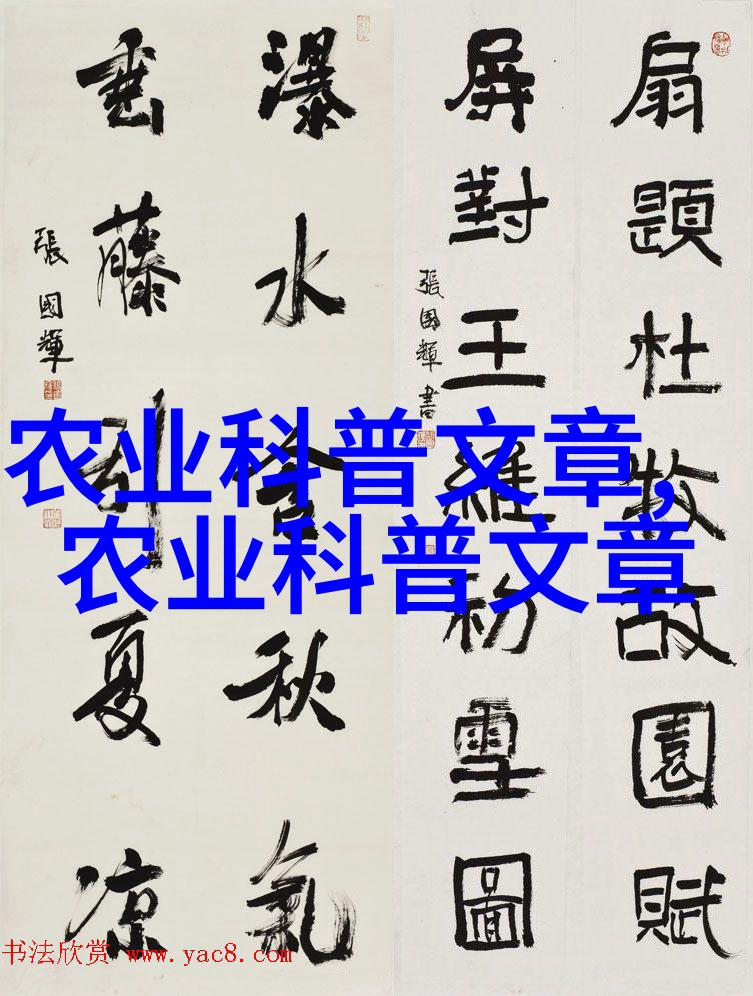 扇題杜牧故園賦
屏對王維初雪圖
張國輝書
瀑水含秋氣
垂藤引夏凉
張國輝
农业科普文章,
农业科普文章
书法欣赏 www.yac8.com